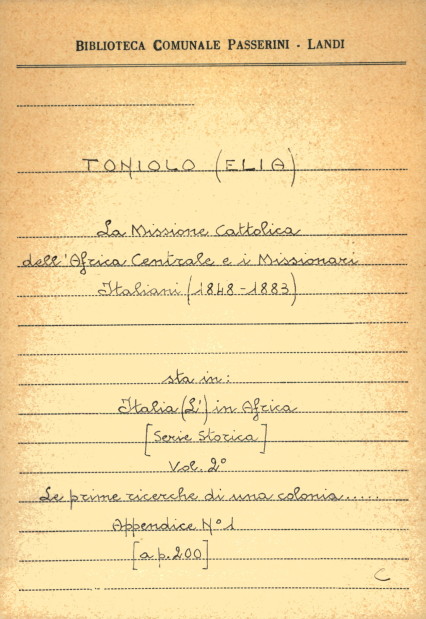 BIBLIOTECA COMUNALE PASSERINI - LANDI
TONIOLO (ELIA)
La Missione Cattolica
dell'Africa Centrale e i Missionari
Italiani (1848-1883)
sta in:
Italia (L') in Africa
[Serie Storica]
Vol. 2°
Le prime ricerche di una colonia.....
Appendice N° 1
[a p. 200]
C